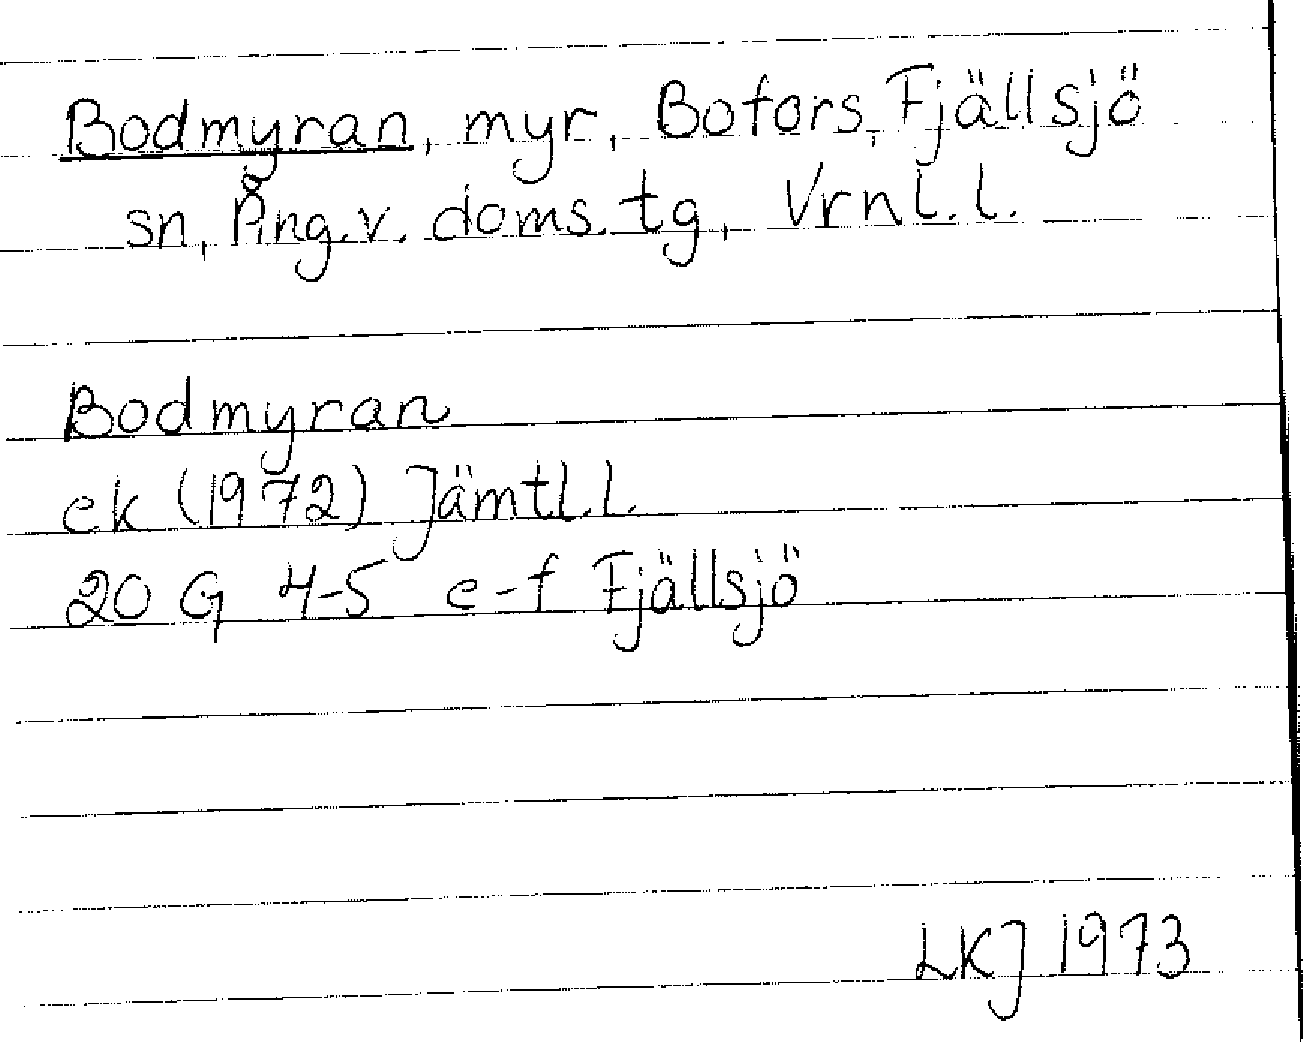 Bodmyran, myr, Bofors, Fjällsjö
sn, Ång.v. doms.tg, Vrnl.l.
Bodmyran
ek (1972) Jämtl.l.
20 G 4-5 e-f Fjällsjö
LKJ 1973